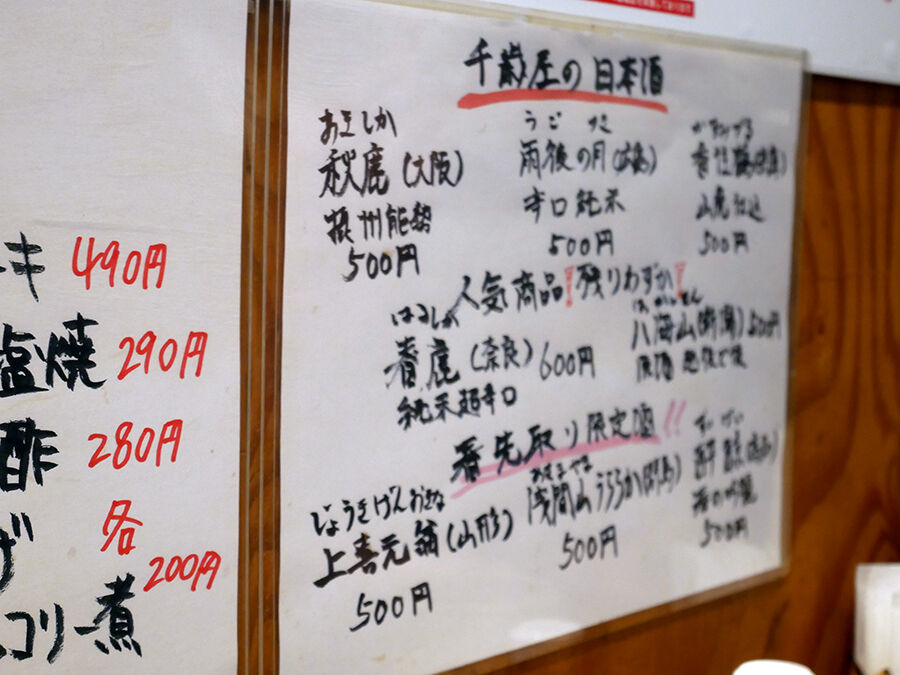 キ 490円
塩焼 290円
酢 280円
げ 各
コリー煮 200円
千歳屋の日本酒
あきしか
秋鹿(大阪)
摂州能勢
500円
うご
雨後の月(広島)
辛口純米
500円
500円
人気商品!残りわずか!
はるしか
春鹿(奈良) 600円
純米超辛口
八海山(新潟) 500円
原酒 越後で候
春先取り限定酒!!
じょうきげんおきな
上喜元翁(山形)
500円
あさまやま
浅間山うららか(群馬)
500円
すいげい
酔鯨(高知)
春の吟麗
500円